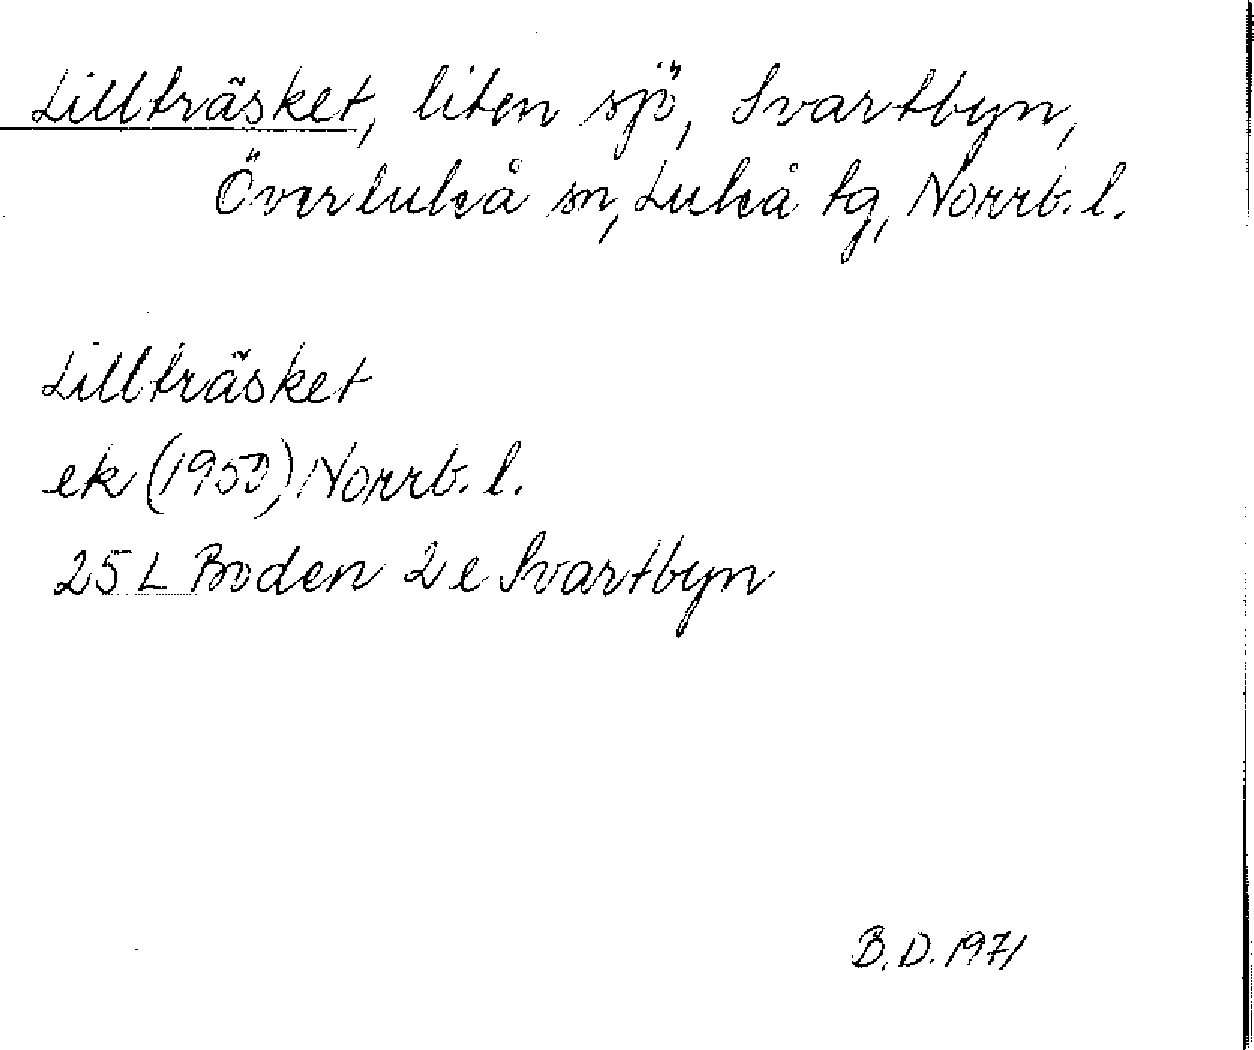 Lillträsket, liten sjö, Svartbyn,
Överluleå sn, Luleå tg, Norrb. l.
Lillträsket
ek (1950) Norrb. l.
25 L Boden 2 e Svartbyn
B.D. 1971